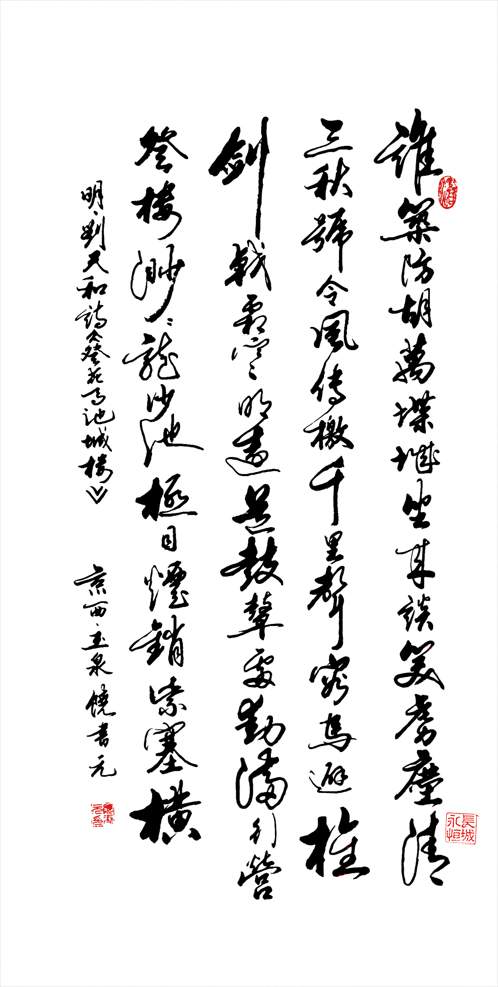 誰築防胡萬堞城坐來談笑虜塵清
三秋號令風傳檄千里聲馬避
劍戟霜寒明遠鼓鼙雷動滿行營
登樓渺渺龍沙池極目煙銷紫塞橫
明·劉天和詩《登花馬池城樓》 京西·玉泉饒書元
長城永恆